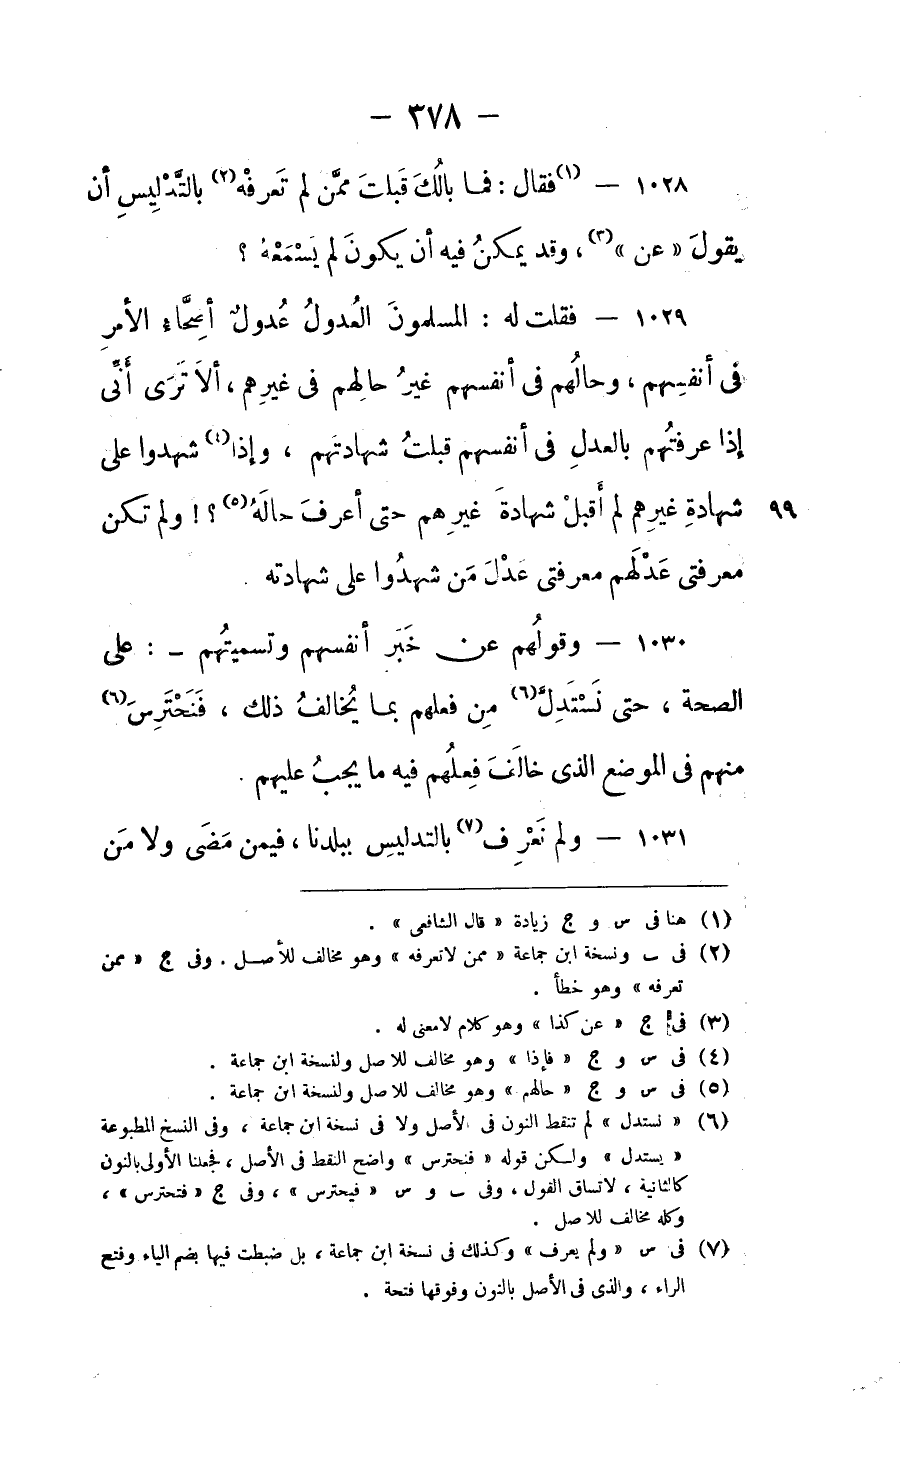 — ٣٧٨ —
١٠٢٨ — (١)فقال : فما بالُكَ قَبِلتَ ممَّن لم تَعرفْه(٢) بالتَّدْلِيسِ أن
يقولَ « عن »(٣) ، وقد يمكنُ فيه أن يكونَ لم يَسْمَعْهُ ؟
١٠٢٩ — فقلت له : المسلمونَ العُدولُ عُدولٌ أصِحَّاءُ الأمرِ
فى أنفسِهم ، وحالُهم فى أنفسهم غيرُ حالِهم فى غيرِهم ، ألاَ تَرَى أنِّى
إذا عرفتُهم بالعدلِ فى أنفسهم قبلتُ شهادتَهم ، وإذا(٤) شهدوا على
شهادةِ غيرِهم لم أَقبلْ شهادةَ غيرِهم حتى أعرفَ حالَهُ(٥) ؟ ! ولم تكن ٩٩
معرفتى عَدْلَهم معرفتى عَدْلَ مَن شهِدُوا على شهادته .
١٠٣٠ — وقولُهم عن خَبَرِ أنفسهم وتسميتُهم — : على
الصحة ، حتى نَسْتَدِلَّ(٦) مِن فعلهم بما يُخالفُ ذلك ، فَنَحْتَرِسَ(٦)
منهم فى الموضع الذى خالَفَ فِعلُهم فيه ما يجبُ عليهم .
١٠٣١ — ولم نَعْرِف(٧) بالتدليسِ ببلدنا ، فيمن مَضَى ولا مَن
(١) هنا فى س و ج زيادة « قال الشافعى » .
(٢) فى ب ونسخة ابن جماعة « ممن لاتعرفه » وهو مخالف للأصل . وفى ج « ممن
تعرفه » وهو خطأ .
(٣) فى ج « عن كذا » وهو كلام لامعنى له .
(٤) فى س و ج « فإذا » وهو مخالف للاصل ولنسخة ابن جماعة .
(٥) فى س و ج « حالهم » وهو مخالف للاصل ولنسخة ابن جماعة .
(٦) « نستدل » لم تنقط النون فى الأصل ولا فى نسخة ابن جماعة ، وفى النسخ المطبوعة
« يستدل » ولكن قوله « فنحترس » واضح النقط فى الأصل ، فجعلنا الأولى بالنون
كالثانية ، لاتساق القول ، وفى ب و س « فيحترس » ، وفى ج « فتحترس » ،
وكله مخالف للاصل .
(٧) فى س « ولم يعرف » وكذلك فى نسخة ابن جماعة ، بل ضبطت فيها بضم الياء وفتح
الراء ، والذى فى الأصل بالنون وفوقها فتحة .